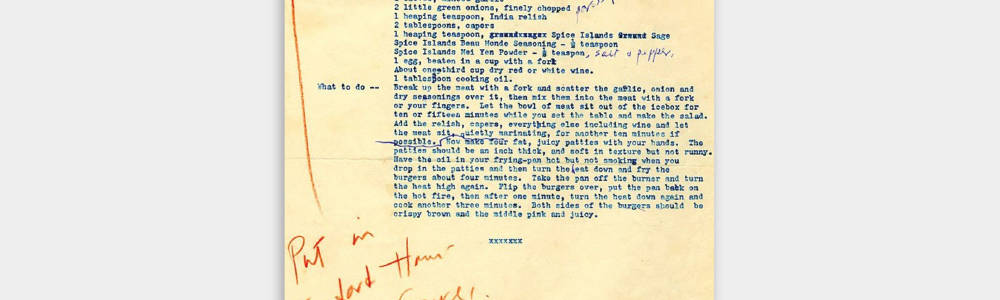 2 little green onions, finely chopped
1 heaping teaspoon, India relish
2 tablespoons, capers
1 heaping teaspoon, Spice Islands Ground Sage
Spice Islands Beau Monde Seasoning - ½ teaspoon
Spice Islands Mei Yen Powder - ½ teaspon, salt & pepper.
1 egg, beaten in a cup with a fork
About one-third cup dry red or white wine.
1 tablespoon cooking oil.
What to do -- Break up the meat with a fork and scatter the garlic, onion and
dry seasonings over it, then mix them into the meat with a fork
or your fingers. Let the bowl of meat sit out of the icebox for
ten or fifteen minutes while you set the table and make the salad.
Add the relish, capers, everything else including wine and let
the meat sit, quietly marinating, for another ten minutes if
possible. Now make four fat, juicy patties with your hands. The
patties should be an inch thick, and soft in texture but not runny.
Have the oil in your frying-pan hot but not smoking when you
drop in the patties and then turn the heat down and fry the
burgers about four minutes. Take the pan off the burner and turn
the heat high again. Flip the burgers over, put the pan back on
the hot fire, then after one minute, turn the heat down again and
cook another three minutes. Both sides of the burgers should be
crispy brown and the middle pink and juicy.
xxxxxxx
Put in